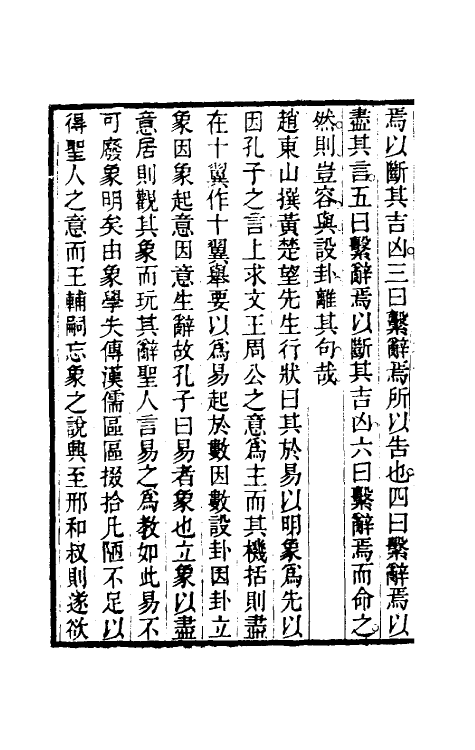 焉以斷其吉凶三曰繫辭焉所以告也四曰繫辭焉以
盡其言五曰繫辭焉以斷其吉凶六曰繫辭焉而命之
然則豈容與設卦離其句哉
趙東山撰黃楚望先生行狀曰其於易以明象爲先以
因孔子之言上求文王周公之意爲主而其機括則盡
在十翼作十翼舉要以爲易起於數因數設卦因卦立
象因象起意因意生辭故孔子曰易者象也立象以盡
意居則觀其象而玩其辭聖人言易之爲教如此易不
可廢象明矣由象學失傳漢儒區區掇拾凡陋不足以
得聖人之意而王輔嗣忘象之說興至邢和叔則遂欲